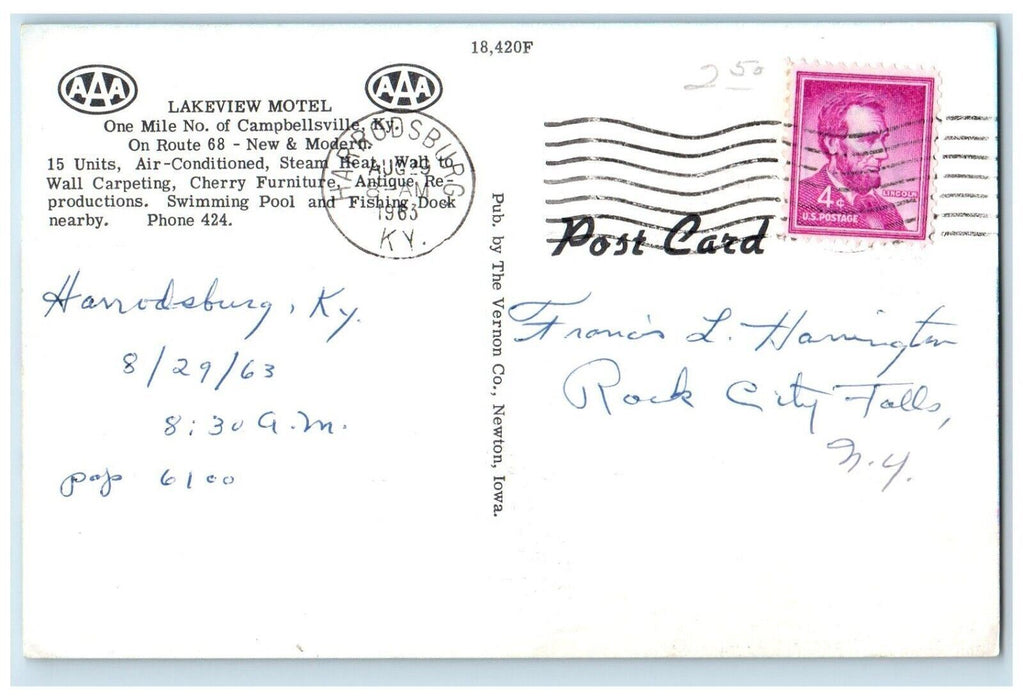 18,420F
2 50
AAA AAA
LAKEVIEW MOTEL
One Mile No. of Campbellsville, Ky.
On Route 68 - New & Modern.
15 Units, Air-Conditioned, Steam Heat, Wall to
Wall Carpeting, Cherry Furniture, Antique Re-
productions. Swimming Pool and Fishing Dock
nearby. Phone 424.
HARRODSBURG
AUG 29
AM
1963
KY.
LINCOLN
4¢
U.S. POSTAGE
Post Card
Pub. by The Vernon Co., Newton, Iowa.
Harrodsburg, Ky.
8/29/63
8:30 A.M.
pop 6100
Francis L. Harrington
Rock City Falls,
N.Y.